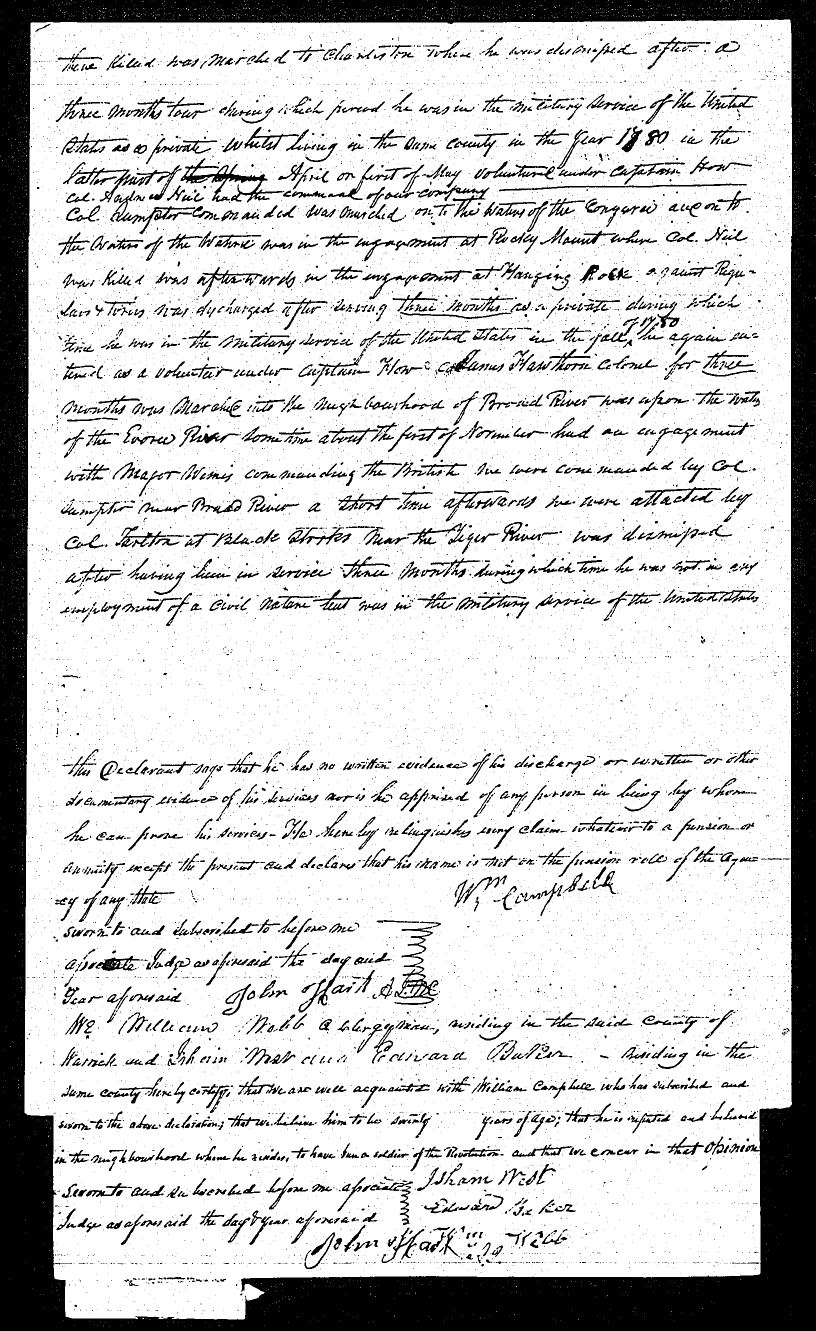 there killed was marched to Charleston where he was dismissed after a
three months tour during which period he was in the military service of the United
States as a private whilst living in the same county in the Year 1780 in the
latter part of the Spring April or first of May volunteered under Captain How
Col. Andrew Neil had the command of our company
Col Sumpter commanded was marched on to the waters of the Congaree and on to
the Waters of the Wateree was in the engagement at Rocky Mount where Col. Neil
was killed was afterwards in the engagement at Hanging Rock against Regu-
lars & tories was discharged after serving three months as a private during which
time he was in the military service of the United States in the fall of 1780 he again en-
tered as a volunteer under Captain How James Hawthorn Colonel for three
months was Marched into the neighbourhood of Broad River was upon the waters
of the Enoree River sometime about the first of November had an engagement
with Major Wemis commanding the British we were commanded by Col.
Sumpter near Broad River a short time afterwards we were attacted by
Col. Tarlton at Black Stocks near the Tiger River was dismissed
after having been in service three months during which time he was not in any
employment of a civil nature but was in the military service of the United States
this Declarant says that he has no written evidence of his discharge or written or other
documentary evidence of his services nor is he apprised of any person in being by whom
he can prove his services - He hereby relinquishes every claim whatever to a pension or
annuity except the present and declares that his name is not on the pension roll of the agen-
cy of any State
Wm Campbell
sworn to and subscribed to before me
associate Judge as aforesaid the day and
Year aforesaid John Hart
We William Webb a clergyman, residing in the said county of
Warrick and Isham West and Edward Baker - residing in the
same county hereby certify, that we are well acquainted with William Campbell who has subscribed and
sworn to the above declaration; that we believe him to be seventy years of age; that he is reputed and believed
in the neighbourhood where he resides, to have been a soldier of the Revolution and that we concur in that opinion
Sworn to and subscribed before me associate
Isham West
Judge as aforesaid the day & year aforesaid
Edward Baker
John Hart
Wm Webb